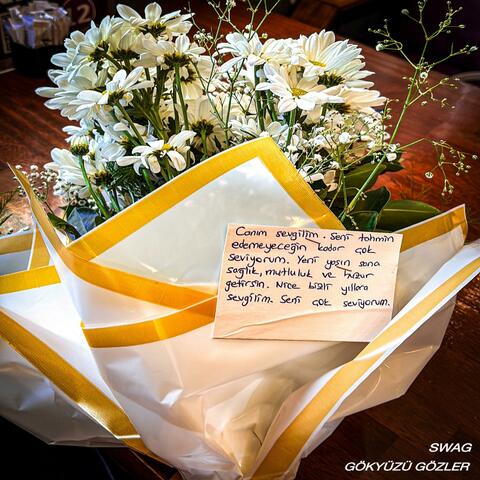 Canım sevgilim. Seni tahmin
edemeyeceğin kadar çok
seviyorum. Yeni yaşın sana
sağlık, mutluluk ve huzur
getirsin. Nice bizli yıllara
sevgilim. Seni çok seviyorum.
SWAG
GÖKYÜZÜ GÖZLER